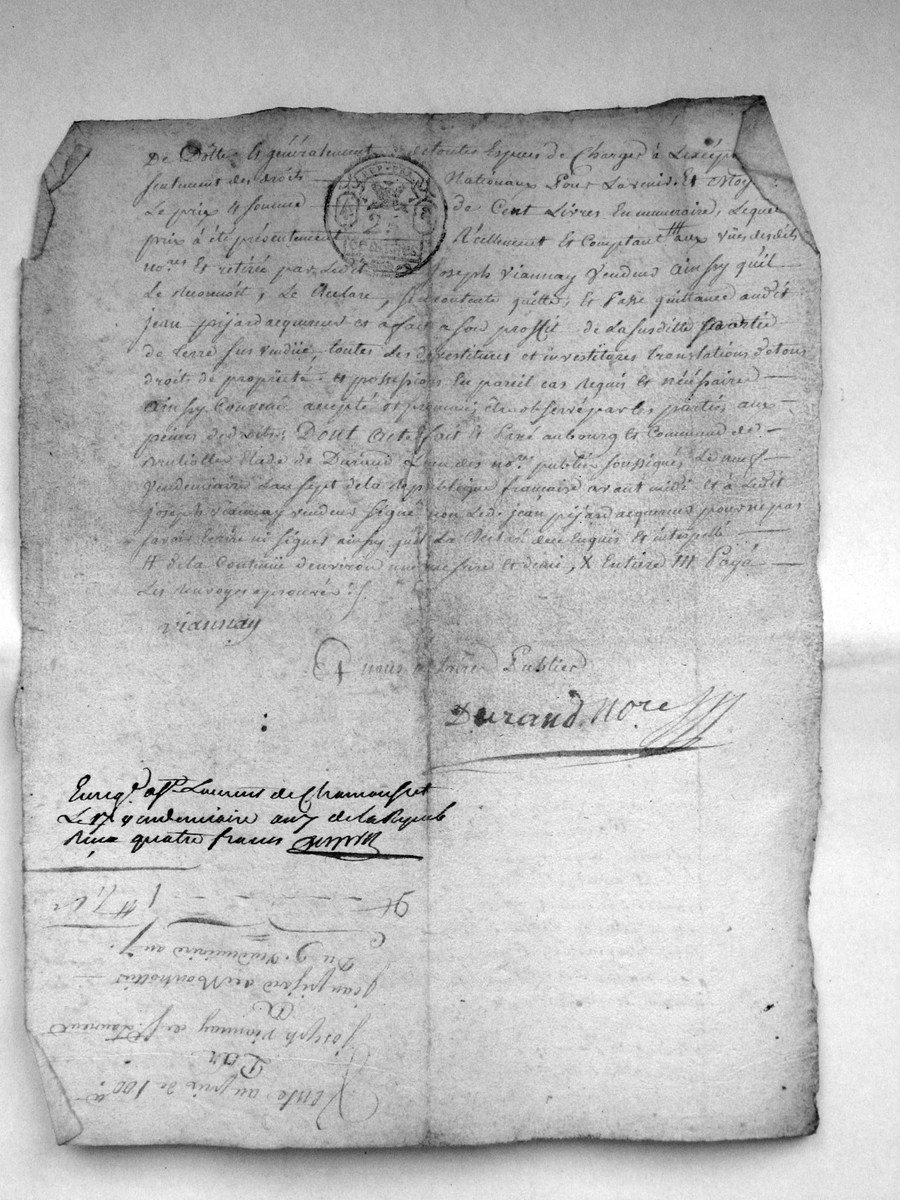 De Dotte Et généralement de toutes Espèces de Charges à Lexcep
seulement des droits Nationaux Pour Lavenir, Et Moy
Le prix & somme de Cent Livres En numeraire, Lequel
prix à été présentement Réellement Et Comptant aux vües desdits
no.res Et retiré par Ledit Joseph Viannay Vendeur Ainsy qu'il
Le Reconnoit, Le declare, Sen contente quitte, Et Passe quittance audit
jean pijard acquereur et a fait a son proffit de La susditte partie
de terre sus vendüe, toutes les devestitures et investitures translations de tous
droit de propriété et possessions En pareil cas Requis Et nécéssaire
Ainsy Convenu accepté et promis être observé par les parties aux
peines de droits, Dont Acte fait Et Passé au bourg Et Commune de
Durand L'un des no.res publics soussignés Le neuf
Vendemiaire L'an Sept de la Republique francaise avant midi et a Ledit
joseph viannay vendeur Signé non Led. jean pijard acquereur pour ne pas
savoir Ecrire ni signer ainsy quil La declaré de ce Enquis Et interpellé
# de la Contenue d'environ une et demi, X Entiere ## Payé
Les Renvoyes approuvés
viannay
Et nous notaires Publics
Durand No.re
Enreg.é a S.t Laurens de Chamousset
Le 17 vendemiaire an 7 de la Repub
Reçu quatre francs
Vente au prix de 100 #
Par
Joseph Viannay de S.t Laurent
A
Jean pijard de
Du 9. Vendemiaire an 7.